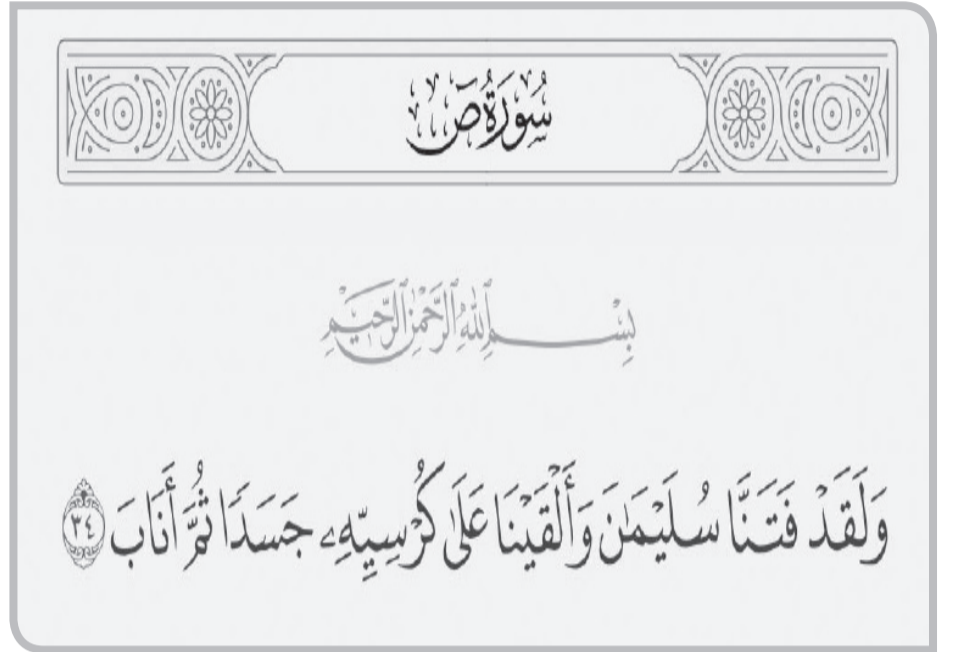 سُورَةُ صٓ
بِسْمِ ٱللَّهِ ٱلرَّحْمَٰنِ ٱلرَّحِيمِ
وَلَقَدْ فَتَنَّا سُلَيْمَٰنَ وَأَلْقَيْنَا عَلَىٰ كُرْسِيِّهِۦ جَسَدًا ثُمَّ أَنَابَ ٣٤